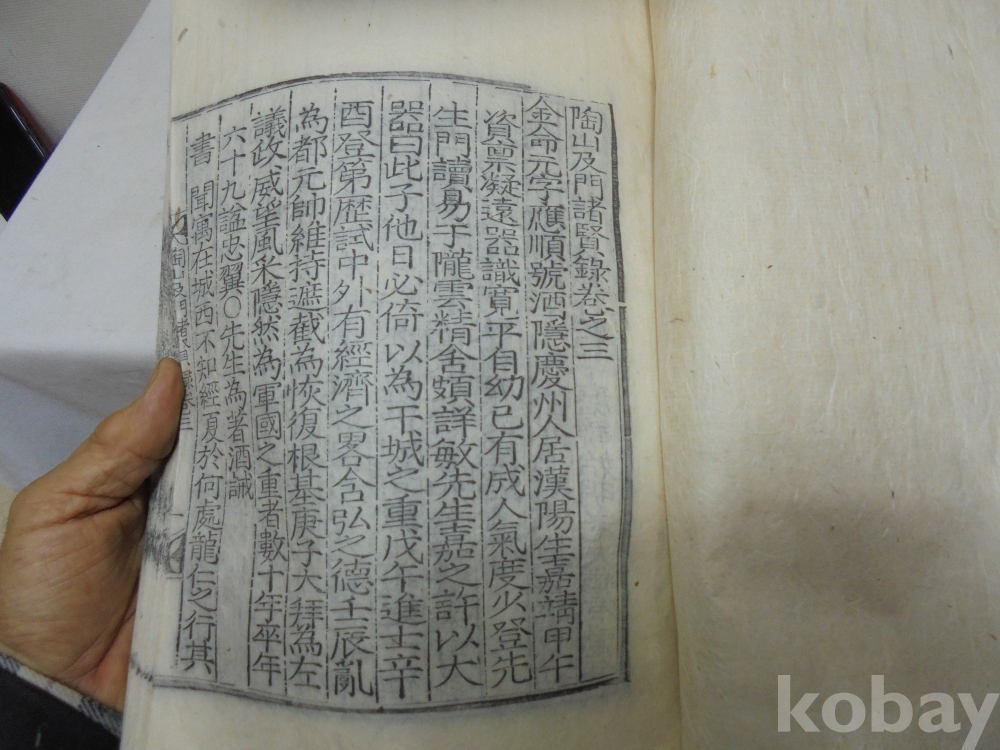 陶山及門諸賢錄卷之三
金命元字應順號酒隱慶州人居漢陽生嘉靖甲午
資稟凝遠器識寬平自幼已有成人氣度少登先
生門讀易于隴雲精舍頗詳敏先生嘉之許以大
器曰此子他日必倚以為干城之重戊午進士辛
酉登第歷試中外有經濟之畧含弘之德壬辰亂
為都元帥維持遮截為恢復根基庚子大拜為左
議政威望風采隱然為軍國之重者數十年卒年
六十九謚忠翼○先生為著酒誡
書 聞寓在城西不知經夏於何處龍仁之行其
陶山及門諸賢錄卷三
kobay